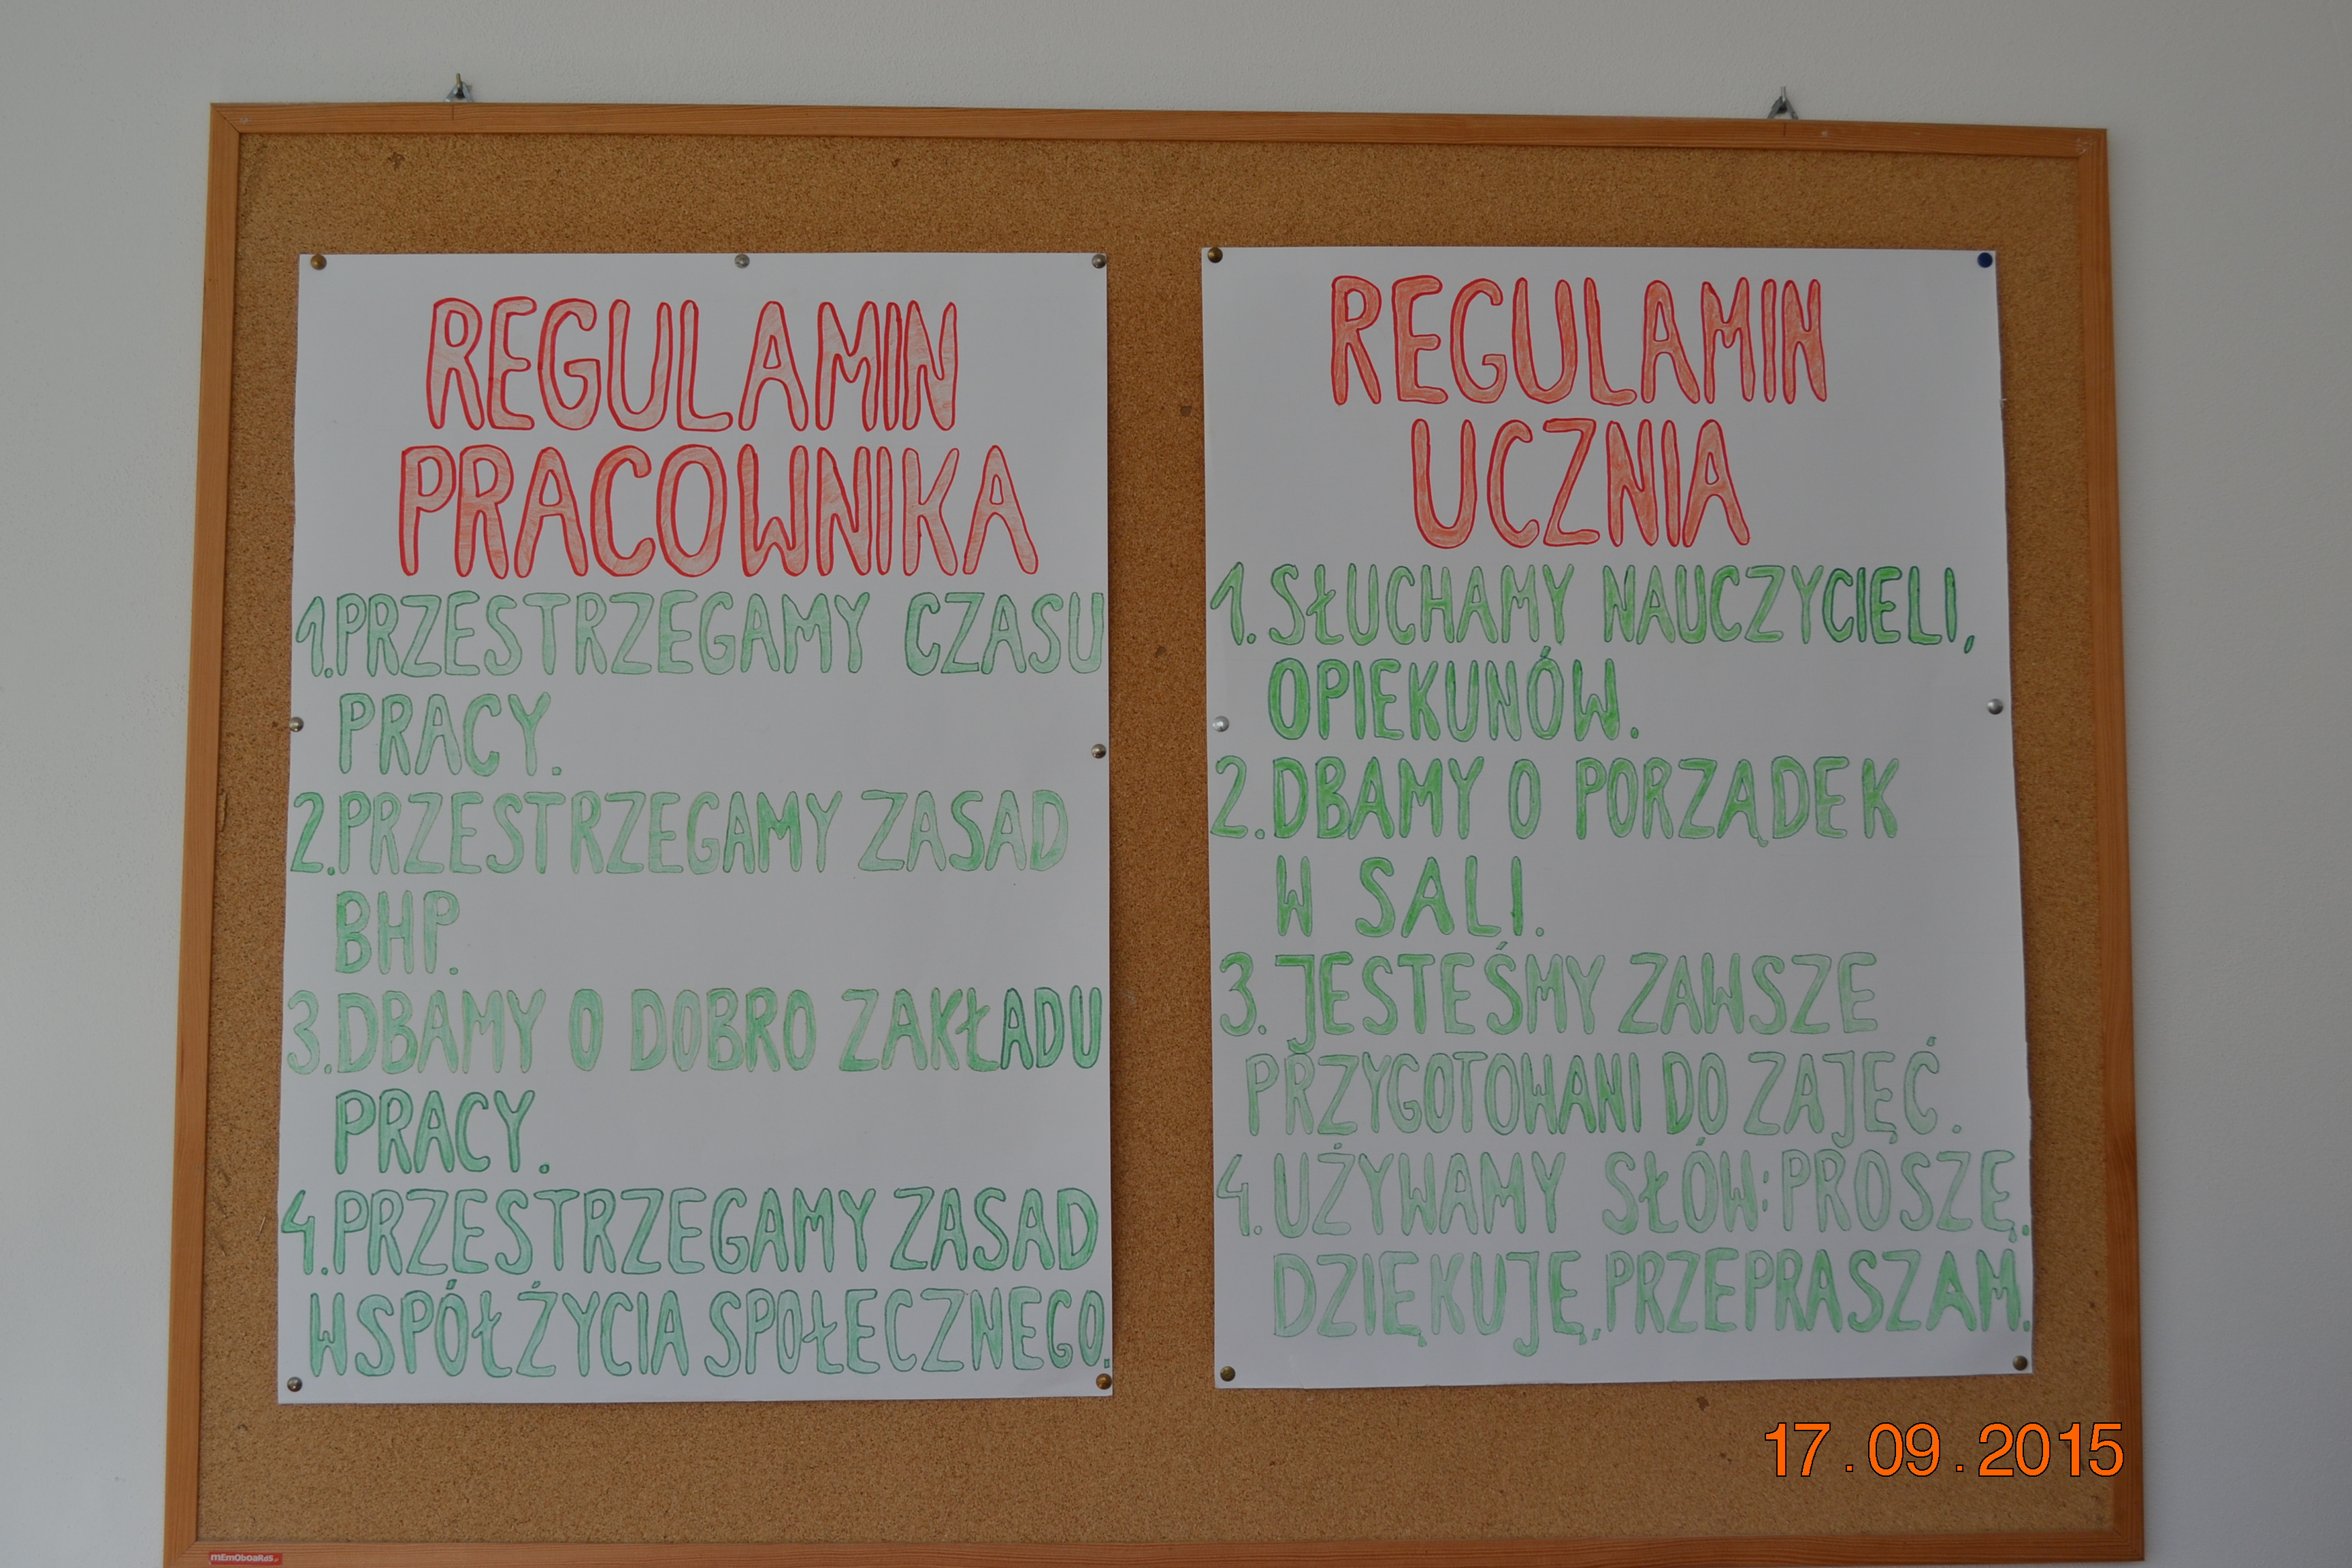 REGULAMIN
PRACOWNIKA
1.PRZESTRZEGAMY CZASU
PRACY.
2.PRZESTRZEGAMY ZASAD
BHP.
3.DBAMY O DOBRO ZAKŁADU
PRACY.
4.PRZESTRZEGAMY ZASAD
WSPÓŁŻYCIA SPOŁECZNEGO.
REGULAMIN
UCZNIA
1.SŁUCHAMY NAUCZYCIELI,
OPIEKUNÓW.
2.DBAMY O PORZĄDEK
W SALI.
3.JESTEŚMY ZAWSZE
PRZYGOTOWANI DO ZAJĘĆ.
4.UŻYWAMY SŁÓW:PROSZĘ.
DZIĘKUJĘ,PRZEPRASZAM.
17.09.2015
memoboards